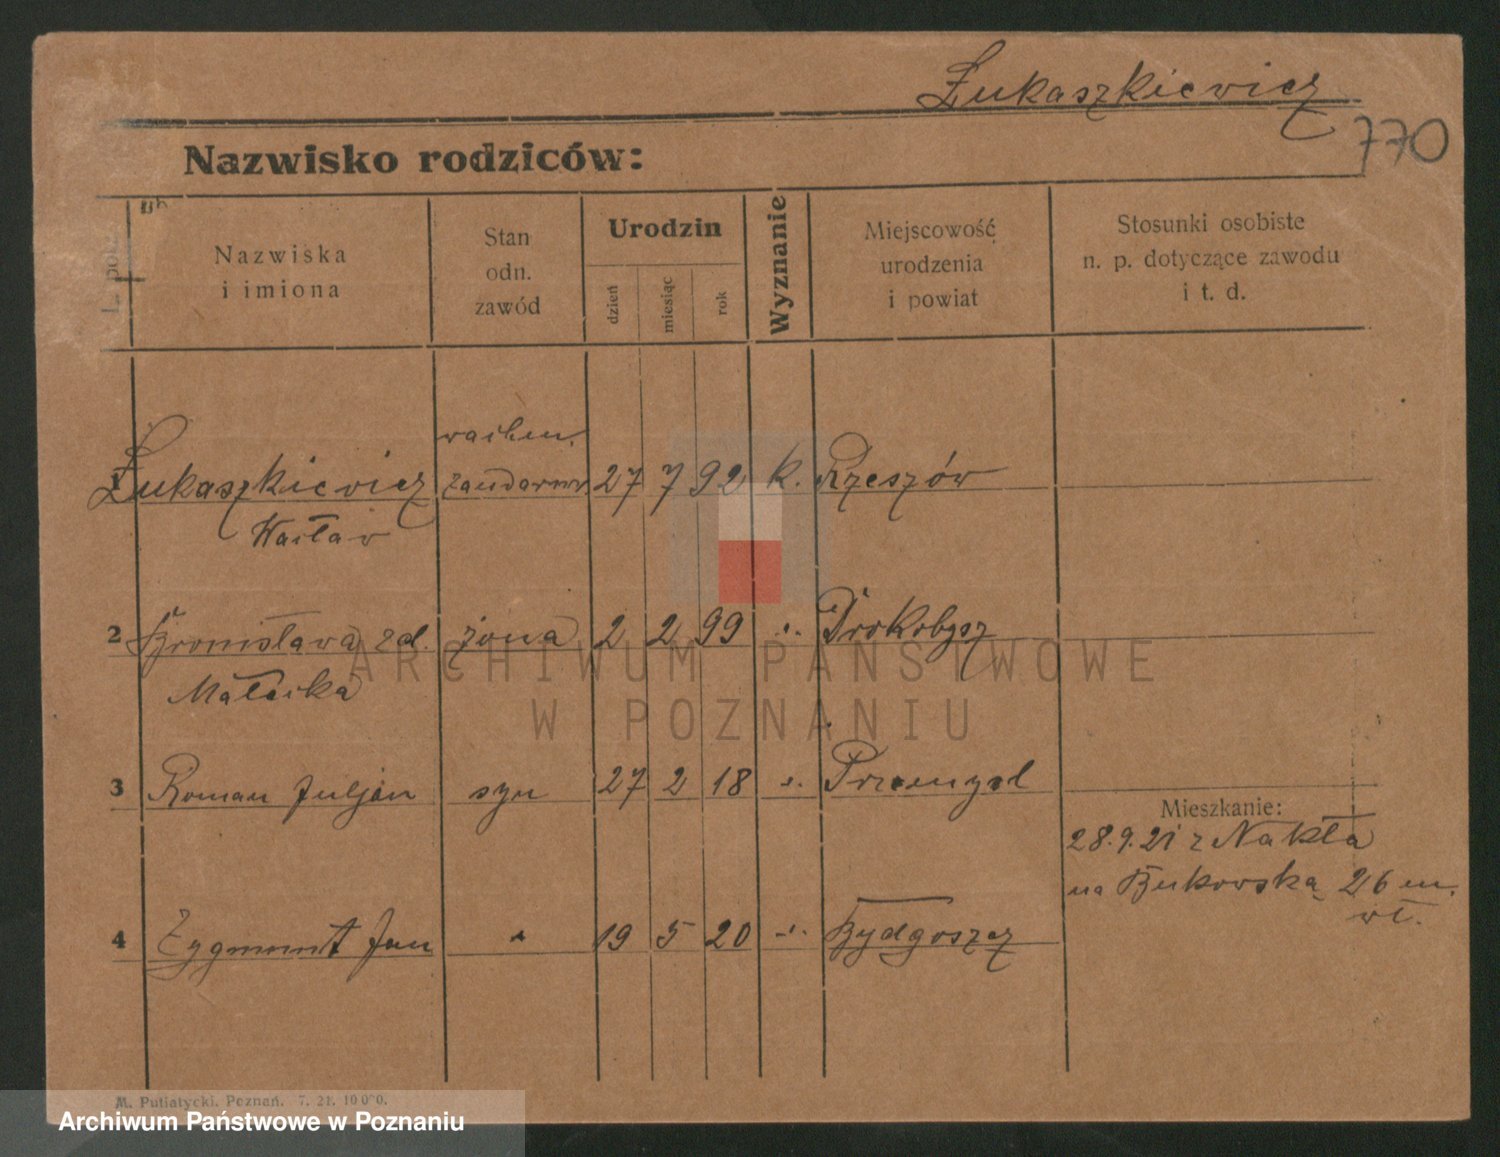 Łukaszkiewicz
770
Nazwisko rodziców:
Nazwiska
i imiona
Stan
odn.
zawód
Urodzin
dzień
miesiąc
rok
Wyznanie
Miejscowość
urodzenia
i powiat
Stosunki osobiste
n. p. dotyczące zawodu
i t. d.
wachm.
Łukaszkiewicz żandarmr. 27 7 92 k. Rzeszów
Wacław
2 Bronisława zd. żona 2 2 99 Drohobysz
Małecka
3 Roman Juljan syn 27 2 18 Przemysl
Mieszkanie:
28.9.21 z Nakła
na Bukowską 26 m.
wł.
4 Zygmunt Jan 19 5 20 Bydgoszcz
ARCHIWUM PAŃSTWOWE
W POZNANIU
M. Putiatycki, Poznań. 7. 21.
Archiwum Państwowe w Poznaniu